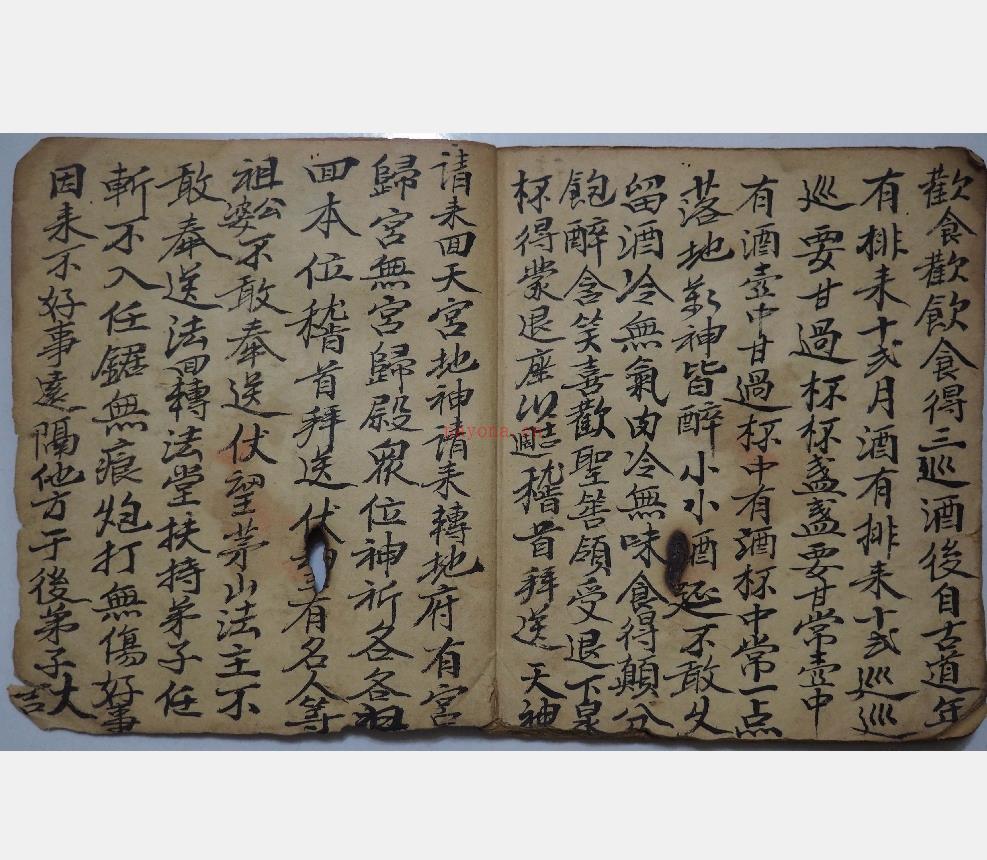 歡食歡飲食得三巡酒後自古道年
有排来十弍月酒有排来十弍巡巡
巡要甘過杯杯盞盞要甘常壺中
有酒壺中甘過杯中有酒杯中常一点
落地萬神皆醉小小酒筵不敢久
留酒冷無氣肉冷無味食得顛分
飽醉含笑喜歡聖筶領受退下泉
杯得蒙退座 稽首拜送天神
請来回天宮地神請来轉地府有宮
歸宮無宮歸殿眾位神祈各各
回本位稽首拜送伏 有名人等
祖公婆不敢奉送伏望茅山法主不
敢奉送法回轉法堂扶持弟子任
斬不入任鋸無痕炮打無傷好事
因来不好事遠隔他方于後弟子大
吉